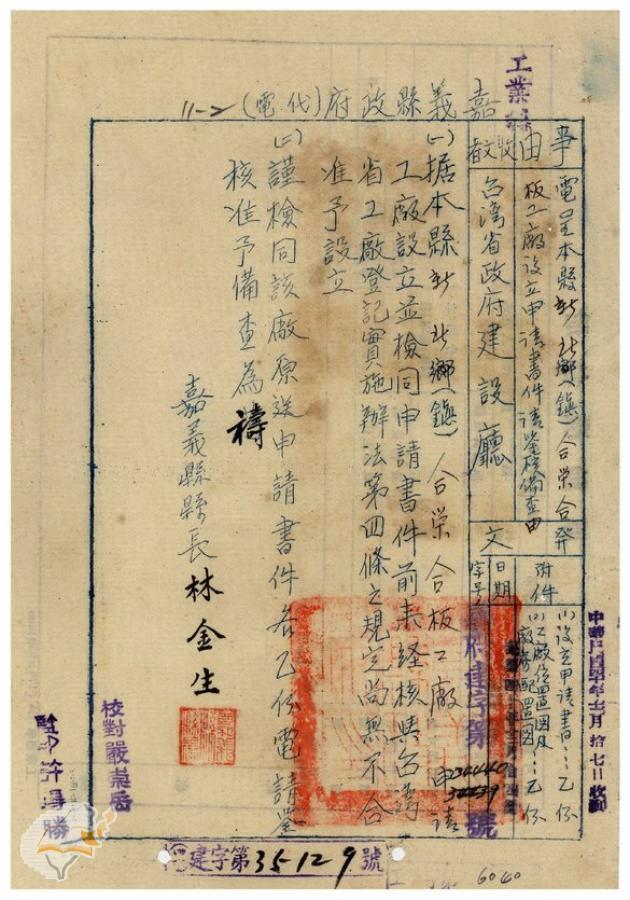 工業
嘉義縣政府(電代) 11-2
事由
電呈本縣新北鄉(鎮)合榮合
板工廠設立申請書件請鑒核備查由
收文者
台灣省政府建設廳
發文
附件
(1)設立申請書…乙份
(2)工廠位置圖及
…乙份
日期
字號
建字第
34440
34439
號
(一)据本縣新北鄉(鎮)合榮合板工廠申請
工廠設立並檢同申請書件前來経核與台灣
省工廠登記實施辦法第四條之規定尚無不合
准予設立
(二)謹檢同該廠原送申請書件各乙份電請鑒
核准予備查為禱
嘉義縣縣長林金生
校對嚴崇岳
建字第35129號
6040